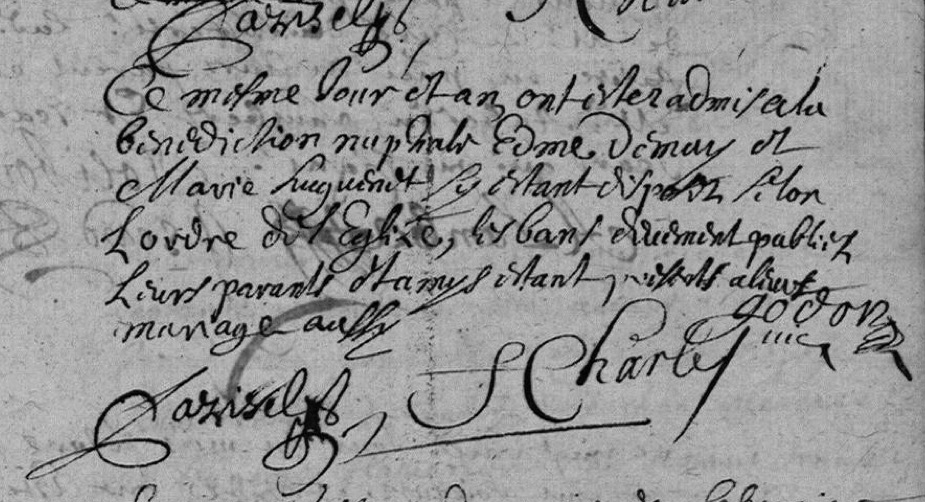 Ce mesme Jour et an ont estez admis a la
benediction nuptiale Edme Demay et
Marie huguenet sy estant disposez selon
Lordre de l'Eglize, les bans deuement publiez
Leurs parants et amys estant presents a leur
mariage aussy
godon
S Charles